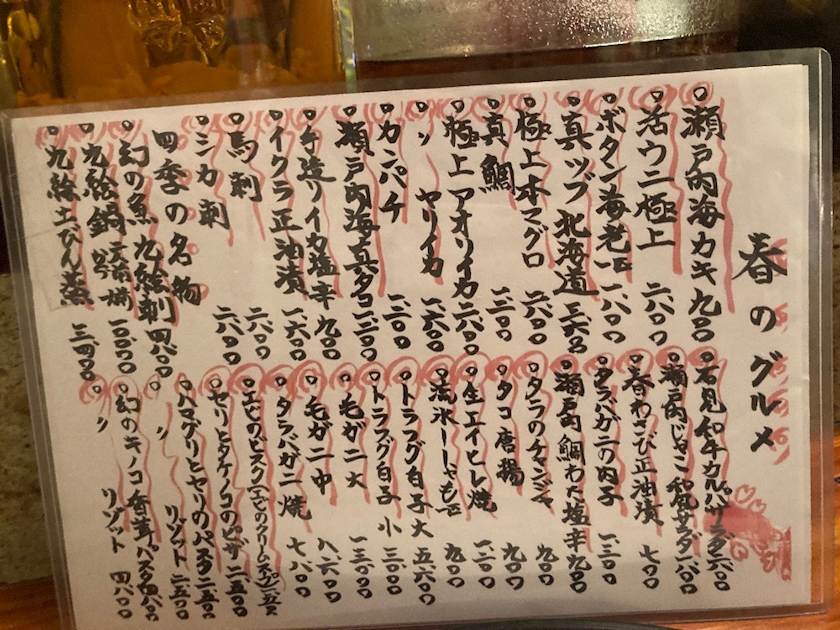 春のグルメ
瀬戸内海カキ 九〇〇
活ウニ極上 二八〇〇
ボタン海老 一八〇〇
真ツブ 北海道 三六〇〇
極上本マグロ 二六〇〇
真鯛 一二〇〇
極上アオリイカ 二八〇〇
〃 ヤリイカ 一六〇〇
カンパチ 一二〇〇
瀬戸内海真タコ 一三〇〇
手造りイカ塩辛 九〇〇
イクラ正油漬 一六〇〇
馬刺 二六〇〇
シカ刺 二八〇〇
四季の名物
幻の魚 九絵刺 四八〇〇
九絵鍋 一〇〇〇〇
九絵土びん蒸 三四〇〇
石見和牛カルパサラダ 二六〇〇
瀬戸内じゃこ和風サラダ 一八〇〇
春わさび正油漬 七〇〇
タラバガニの内子 一三〇〇
瀬戸内鯛わた塩辛 九〇〇
タラのチャンジャ 九〇〇
タコ唐揚 九〇〇
生エイヒレ焼 一二〇〇
流氷 九〇〇
トラフグ白子 大 五六〇〇
トラフグ白子 小 三〇〇〇
毛ガニ 大 一三〇〇〇
毛ガニ 中 八六〇〇
タラバガニ焼 七八〇〇
エビのビスク(エビのクリームスープ) 二五〇〇
セリとタケノコのピザ 二五〇〇
ハマグリとセリのパスタ 二五〇〇
〃 リゾット 二五〇〇
幻のキノコ 香茸パスタ 四八〇〇
〃 リゾット 四八〇〇